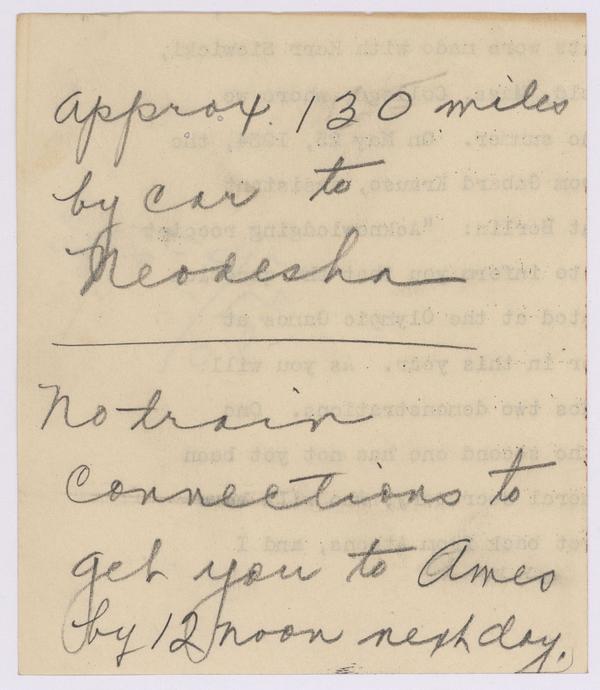 approx. 130 miles
by car to
Neodesha
No train
connections to
get you to Ames
by 12 noon next day.